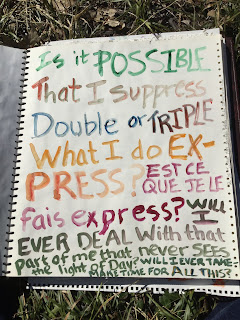 Is it POSSIBLE
That I suppress
Double or TRIPLE
What I do EX-
PRESS? EST CE
QUE JE LE
fais express? WILL I
EVER DEAL With that
part of me that never SEES
the light of Day? WILL I EVER TAKE
MAKE TIME FOR ALL THIS?